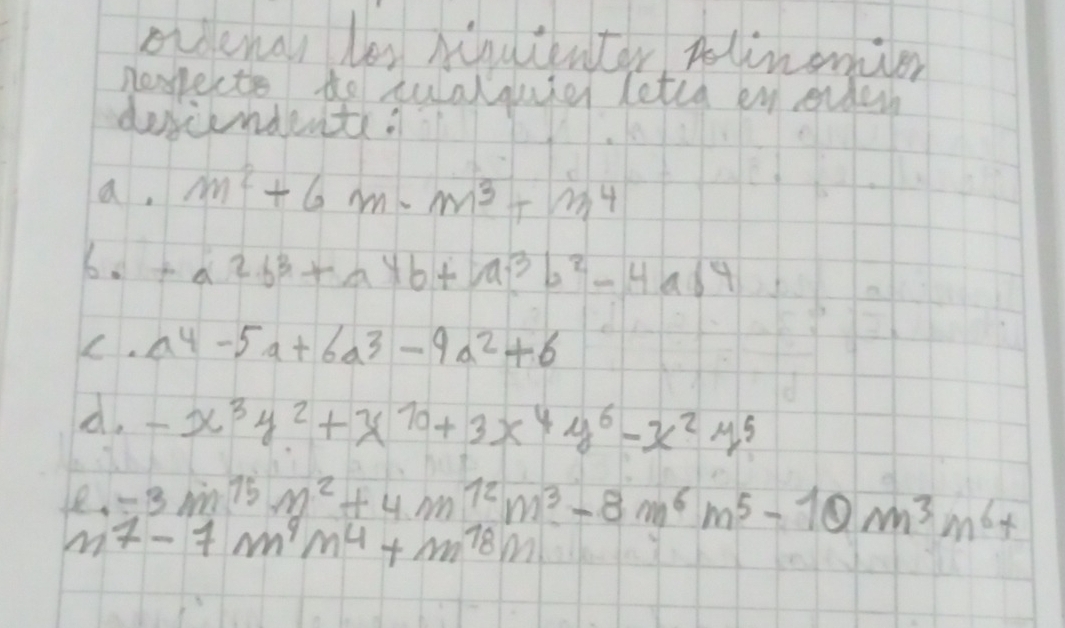 ordenar los siguientes polinomios
respecto de cualquier letra en orden
descendente:
a. m² + 6 m - m³ + m⁴
b. - a²b³ + a⁴b + a³b² - 4ab⁴
c. a⁴ - 5a + 6a³ - 9a² + 6
d. - x³y² + x¹⁰ + 3x⁴y⁶ - x²y⁵
e. - 3m¹⁵n² + 4m¹²m³ - 8m⁶m⁵ - 10m³m⁶ +
n⁷ - 7m⁹n⁴ + m¹⁸n